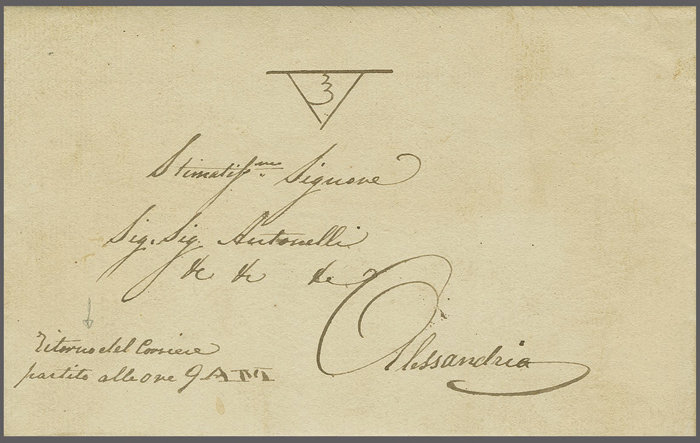 3
Stimatiss.mo Signore
Sig. Sig. Antonelli
&c &c &c
Alessandria
Ritorno del Corriere
partito alle ore 9 AM